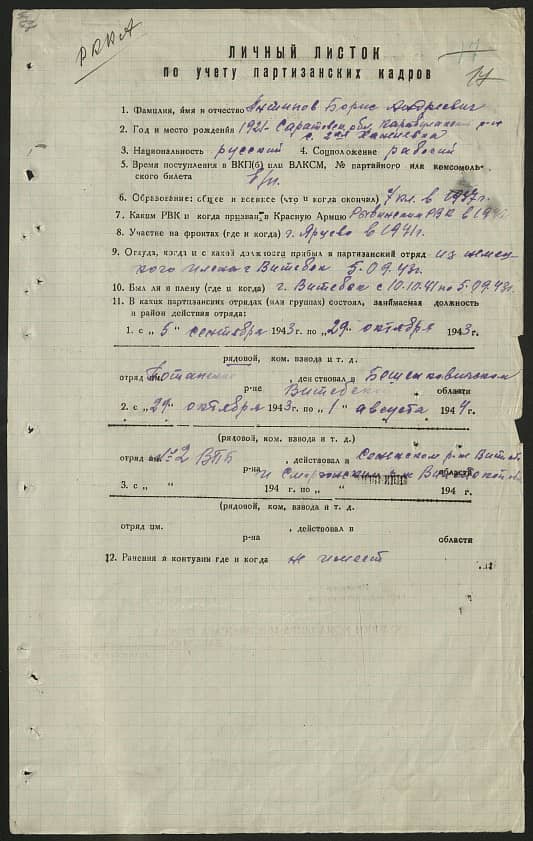 РККА
17
ЛИЧНЫЙ ЛИСТОК
по учету партизанских кадров
1. Фамилия, имя и отчество Антипов Борис Андреевич
2. Год и место рождения 1921 Саратовск. обл.
3. Национальность русский 4. Соцположение рабочий
5. Время поступления в ВКП(б) или ВЛКСМ, № партийного или комсомоль-
ского билета б/п.
6. Образование: общее и военное (что и когда окончил) 7 кл. в 1937г.
7. Каким РВК и когда призван в Красную Армию РВК в 1941
8. Участие на фронтах (где и когда) г. Ярцево в 1941г.
9. Откуда, когда и с какой должности прибыл в партизанский отряд из немец-
кого плена г Витебск 5.09.43г.
10. Был ли в плену (где и когда) г. Витебск с 10.10.41 по 5.09.43г.
11. В каких партизанских отрядах (или группах) состоял, занимаемая должность
и район действия отряда:
1. с „ 5 " сентября 1943 г. по „ 29 " октября 1943 г.
рядовой, ком. взвода и т. д.
отряд им. , действовал в
р-не Витебской области
2. с „ 29 " октября 1943 г. по „ 1 " августа 1944 г.
(рядовой, ком. взвода и т. д.)
отряд им. №2 ВПБ , действовал в Сенненском р-не Витеб.
р-на и области
3. с „ " 194 г. по „ " 194 г.
(рядовой, ком. взвода и т. д.)
отряд им. , действовал в
р-на области
12. Ранения и контузии где и когда не имеет